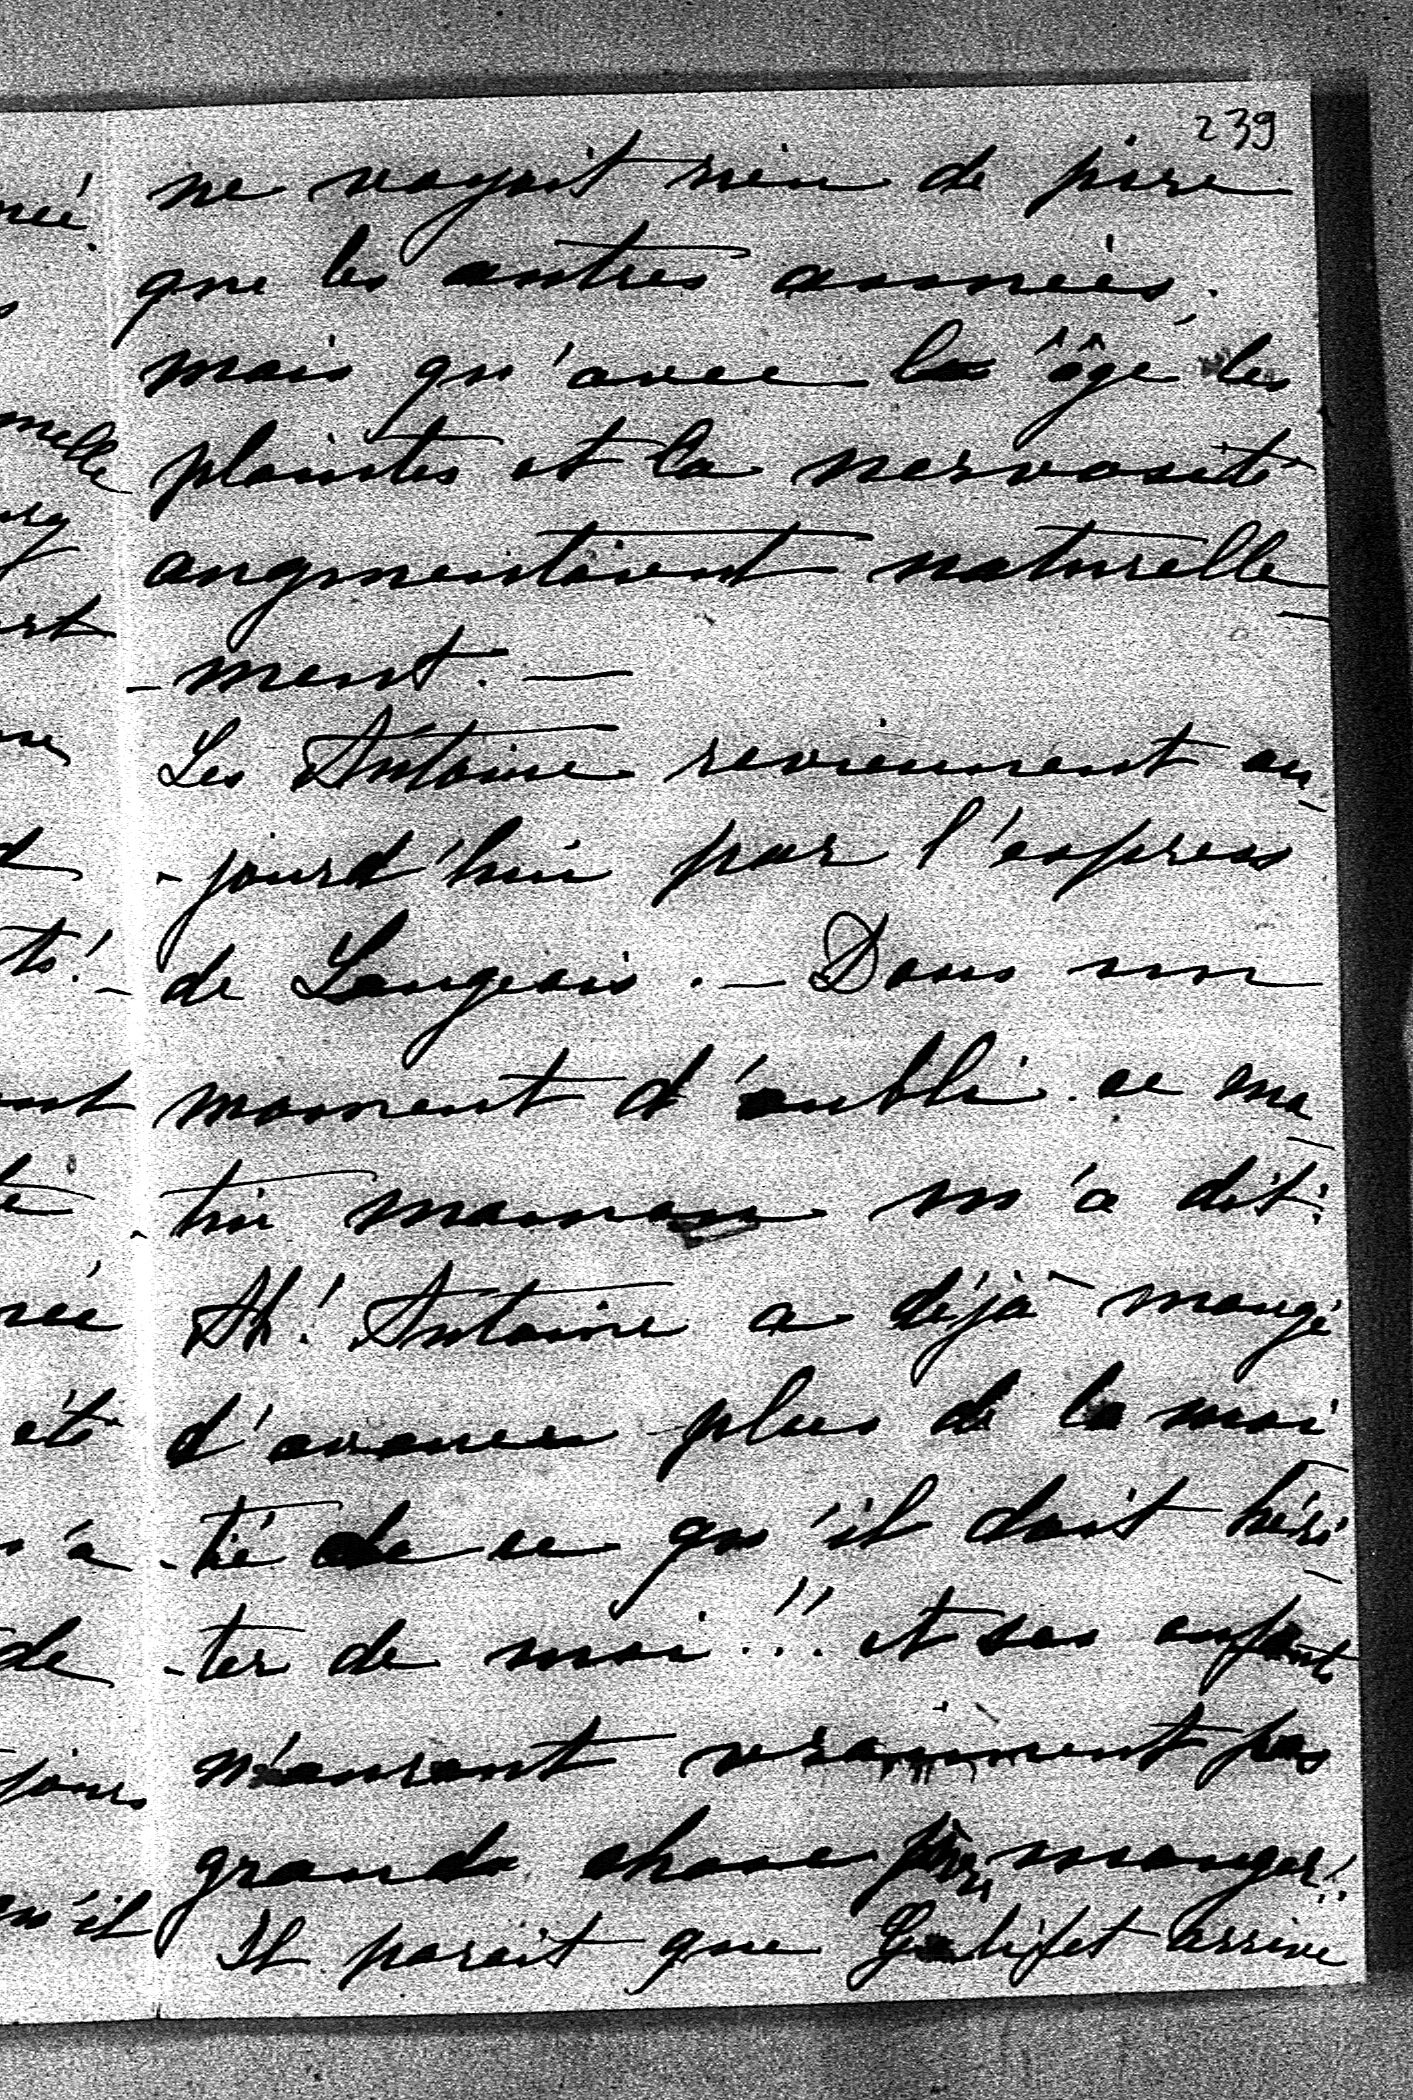 239
ne voyait rien de pire
que les autres années.
mais qu'avec l'âge les
plaintes et la nervosité
augmentaient naturelle
-ment. —
Les Antoine reviennent au
-jourd'hui par l'express
de Langeais. — Dans un
moment d'oubli ce ma
-tin maman m'a dit:
Ah! Antoine a déjà mangé
d'avance plus de la moi
-tié de ce qu'il doit héri
-ter de moi!! et ses enfants
n'auront vraiment pas
grande chose pour manger!!
Il parait que Galifet arrive